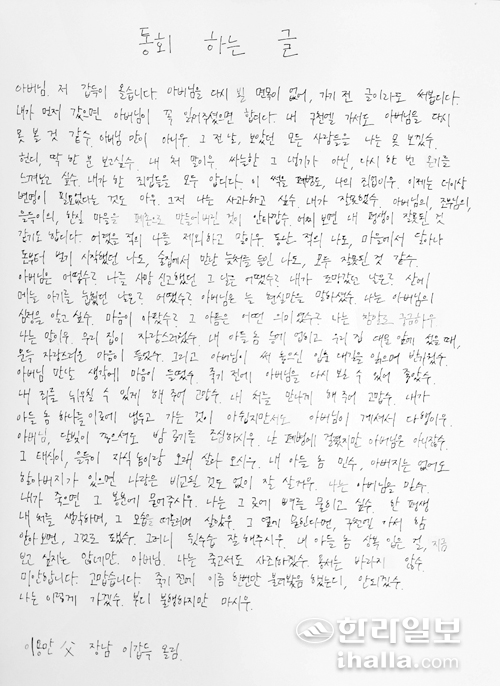 통회 하는 글
아버님. 저 갑득이 올습니다. 아버님을 다시 뵐 면목이 없어, 가기 전 글이라도 써봅니다.
내가 먼저 갔으면 아버님이 꼭 읽어주셨으면 합니다. 내 구천엘 가서도 아버님을 다시
못 볼 것 같수. 아버님 만이 아니우. 그 전 날, 보았던 모든 사람들을 나는 못 보겠수.
헌디, 딱 한 분 보고싶수. 내 처 말이우. 싸늘한 그 냉기가 아닌, 다시 한 번 온기를
느껴보고 싶수. 내가 한 짓임을 모두 압니다. 이 썩을 폐병도, 나의 죄임이우. 이제는 더이상
변명이 필요없다는 것도 아우. 그저 나는 사과하고 싶수. 내가 잘못했수. 아버님의,
을득이의, 한심 마음을 만들어버린 것이 안타깝수. 어찌 보면 내 평생이 잘못된 것
같기도 합니다. 어렸을 적의 나를 제외하고 말이우. 동난 적의 나도, 마을에서
돈부터 벌기 시작했던 나도, 술집에서 만난 꽃처를 들인 나도, 모두 잘못된 것 같수.
아버님은 어땠수? 나를 사망 신고했던 그 날은 어땠수? 내가 조마갔던 날은?
메는 아기를 눕혔던 날은? 어땠수? 아버님은 늘 현실만을 말하셨수. 나는 아버님의
심정을 알고 싶수. 마음이 아팠수? 그 아픔은 어떤 의미였수? 나는 참말로 궁금하우
나는 말이우. 우리 집이 자랑스러웠수. 내 아들 놈 눕게 업이고 우리 집 대문 앞에 섰을 때,
문득 자랑스러운 마음이 들었수. 그리고 아버님이 써 놓으신 입춘대길을 읽으며 반가웠수.
아버님 만날 생각에 마음이 들떴수. 죽기 전에 아버님을 다시 보고 갈 수 있어 좋았수.
내 죄를 뉘우칠 수 있게 해 주어 고맙수. 내 처를 만나게 해 주어 고맙수. 내가
아들 놈 하나를 이곳에 냅두고 가는 것이 아쉽지만서도 아버님이 계셔서 다행이우.
아버님, 달빛이 적으셔도 밤 공기를 조심하시우. 난 폐병에 걸렸지만 아버님은 아니잖수.
그 태식이, 을득이 자식 놈이랑 오래 살다 오시우. 내 아들 놈 민수, 아버지는 없어도
할아버지가 있으면 나랑은 비교된 것도 없이 잘 살거우. 나는 아버님을 믿수.
내가 죽으면 그 본본에 묻어주시우. 나는 그 곳에 뼈를 묻히고 싶수. 한 평생
내 처를 생각하며, 그 모습을 떠올리며 살았우. 그 옆에 묻힌다면, 구천엘 가서 함
안아 보면, 그것으로 됐수. 그러니 뒷수습 잘 해주시우. 내 아들 놈 상복 입은 걸, 지금
보고 싶지는 않네만. 아버님. 나는 죽고서도 사죄하겠수. 용서는 바라지 않수.
미안합니다. 고맙습니다. 죽기 전에 이름 한번만 불러봤음 했는디, 안되겠수.
나는 이렇게 가겠수. 부디 불행하지만 마시우.
이용만 父 장남 이갑득 올림.
한라일보
ihalla.com